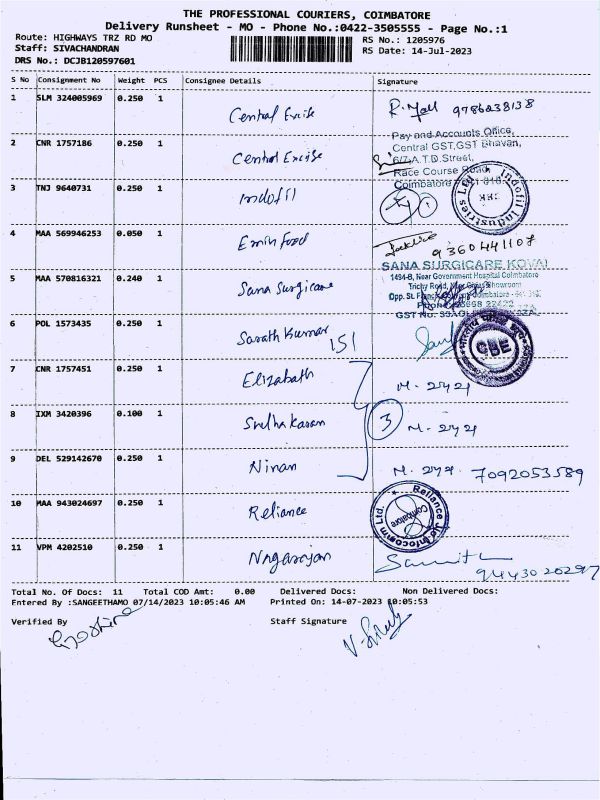 THE PROFESSIONAL COURIERS, COIMBATORE
Delivery Runsheet - MO - Phone No.:0422-3505555 - Page No.:1
Route: HIGHWAYS TRZ RD MO
RS No.: 1205976
Staff: SIVACHANDRAN
RS Date: 14-Jul-2023
DRS No.: DCJB120597601
S No Consignment No Weight PCS Consignee Details Signature
1 SLM 324005969 0.250 1 Central Excise 9786238138
2 CNR 1757186 0.250 1 Central Excise
Pay and Accounts Office,
Central GST,GST Bhavan,
6/7,A.T.D.Street,
Race Course Road,
Coimbatore
3 TNJ 9640731 0.250 1 Indofil
Indofil Industries Ltd
4 MAA 569946253 0.050 1 Emin Food 9360441108
5 MAA 570816321 0.240 1 Sana Surgicare
SANA SURGICARE KOVAI
1494-B, Near Government Hospital Coimbatore
Trichy Road, Showroom
Opp. St. Coimbatore
Phone
GST No.
6 POL 1573435 0.250 1 Sarath Kumar 151
CBE
7 CNR 1757451 0.250 1 Elizabath
8 IXM 3420396 0.100 1 3
9 DEL 529142670 0.250 1 Ninan 7092053589
10 MAA 943024697 0.250 1 Reliance
Reliance Jio Infocomm Ltd.
Coimbatore
11 VPM 4202510 0.250 1 Nagarajan
Total No. Of Docs: 11 Total COD Amt: 0.00 Delivered Docs: Non Delivered Docs:
Entered By :SANGEETHAMO 07/14/2023 10:05:46 AM Printed On: 14-07-2023 10:05:53
Verified By Staff Signature